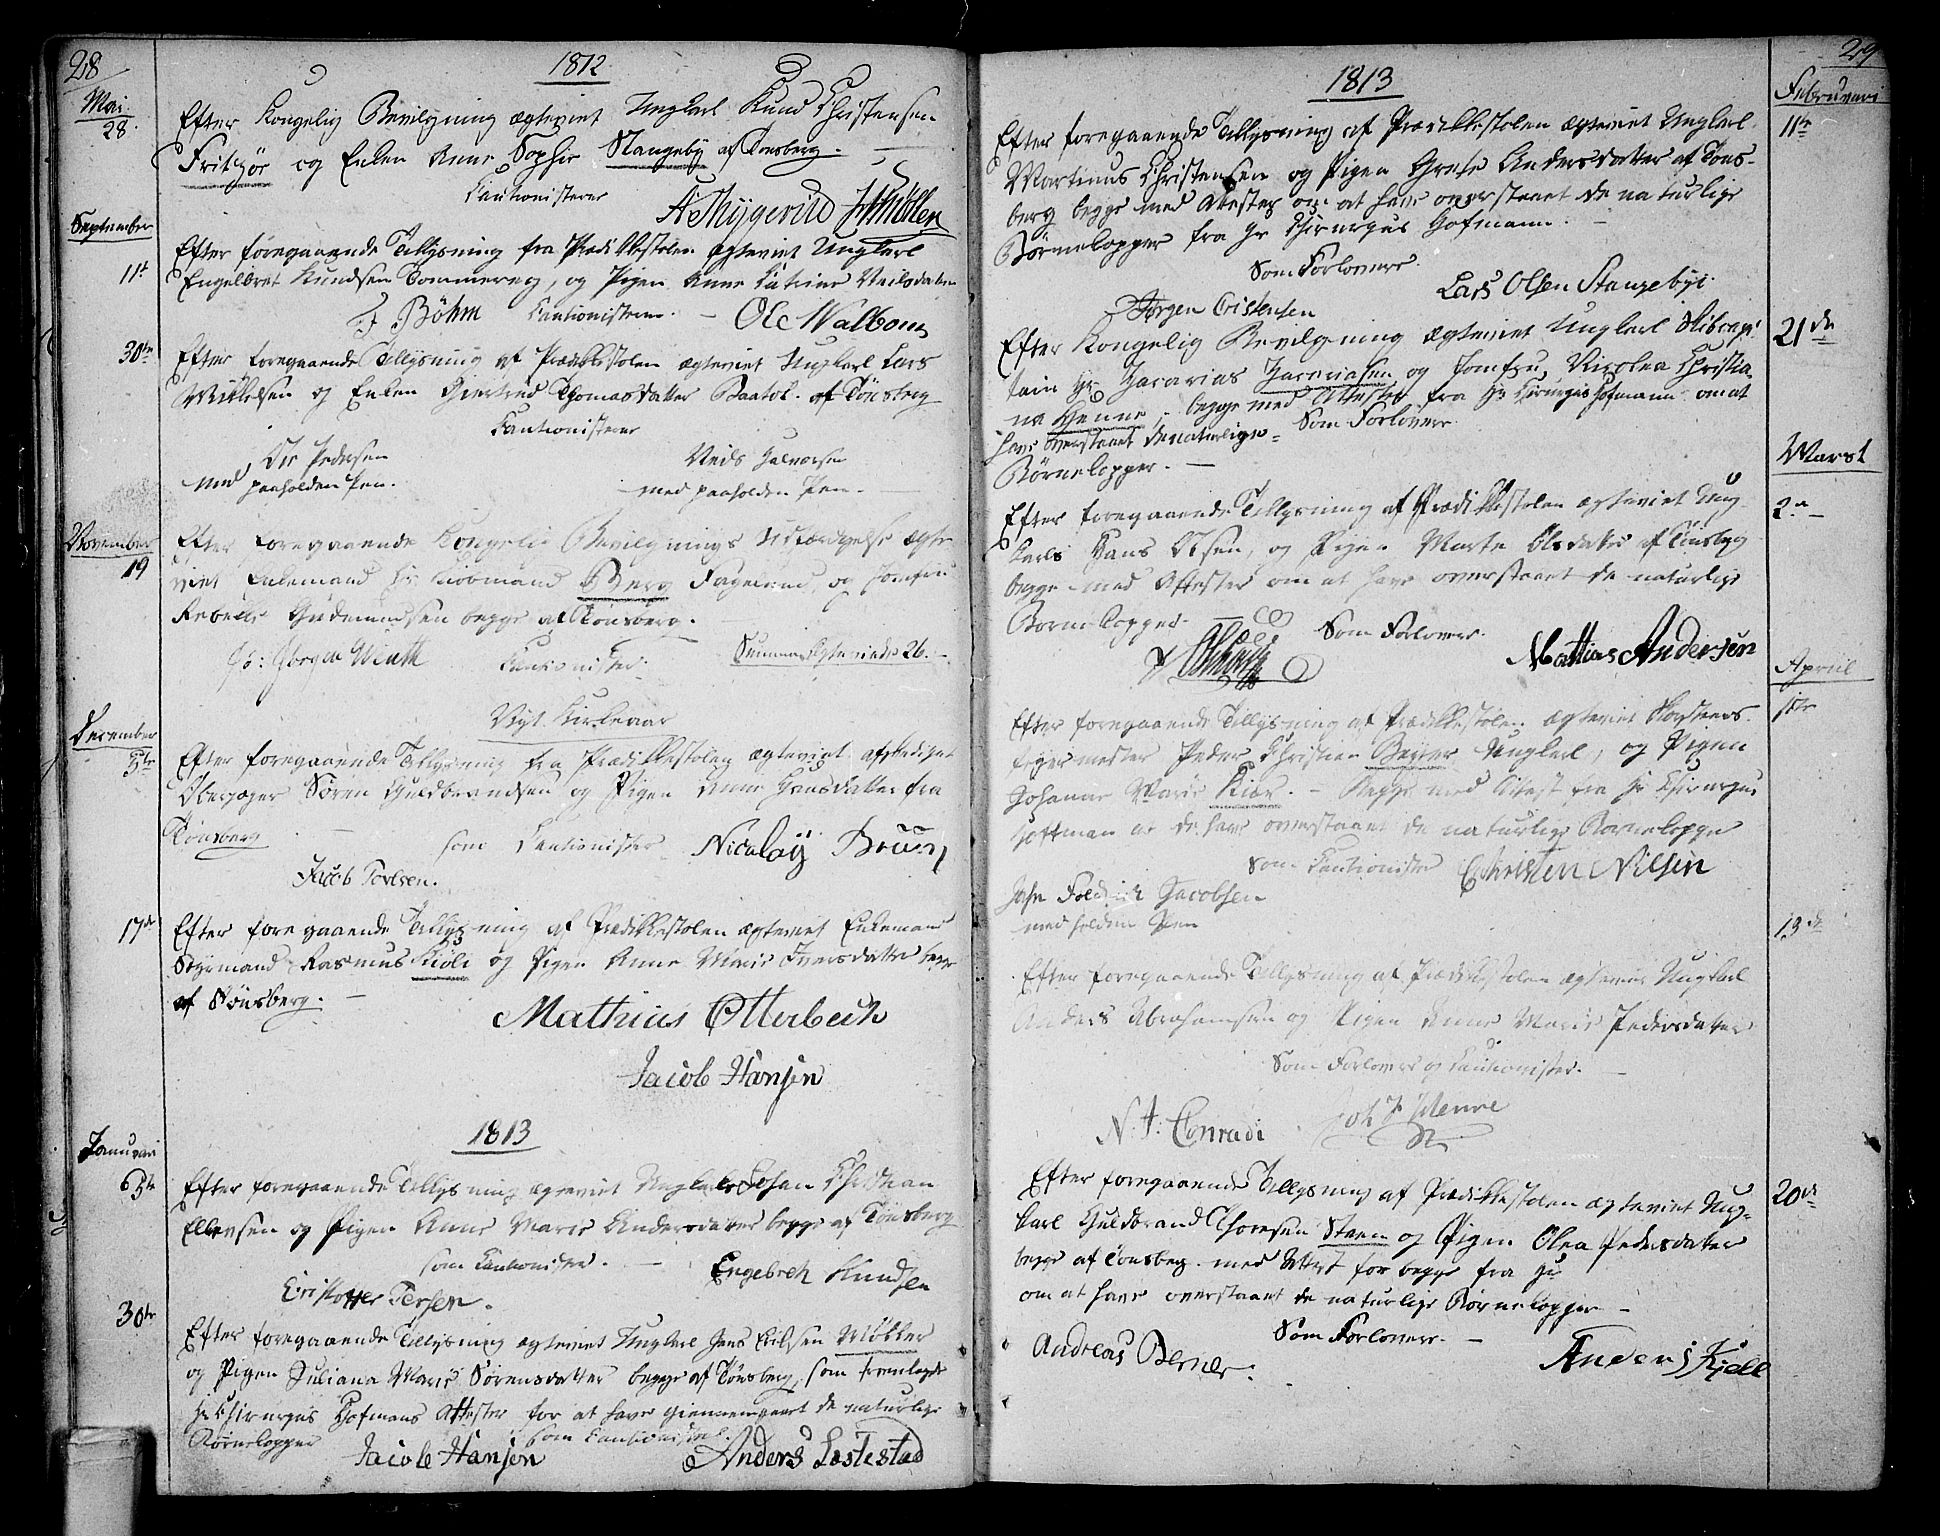 28
1812
Mai.
28.
Efter Kongelig Bevilgning ægteviet Ungkarl Knud Christensen
Fritzøe og Enken Anne Sophie Slangeby af Tønsberg. —
Cantionisterer
September
11te
Efter foregaaende Tillysning fra Prædikkestolen ægteviet Ungkarl
Engelbret Knudsen Tommerag, og Pigen Anne Catrine Neilsdatter
Böhm Cautionisterer. – Ole Walbom
30te
Efter foregaaende Tillysning af Prædikkestolen ægteviet Ungkarl Lars
Mikkelsen og Enken Giertrud Thomasdatter Baatöl. af Tönsberg
Cautionisterer
Ole Pedersen
Neils Halvorsen
med paaholden Pen.
med paaholden Pen. —
November
19
Efter foregaaende Kongelig Bevilgnings Udfærdigelse ægte
viet Enkemand Hr. Kiöbmand Berg Fagelund, og Jomfru
Rebecca Gudmundsen begge af Tönsberg.
Jörgen Winth Cautionister. Summa Ægteviede 26. –
Nyt Kirkeaar
December
3te
Efter foregaaende Tillysning fra Prædikkestolen ægteviet afskediget
Oberjæger Sören Guldbrandsen og Pigen Anne Hansdatter fra
Tönsberg —
som Cautionister Nicolay Bruun
Jacob Torlsen.
17de
Efter foregaaende Tillysning af Prædikkestolen ægteviet Enkemand
Styrmand Rasmus Kiöli og Pigen Anne Marie Iversdatter begge
af Tönsberg. —
Mathias Otterbech
Jacob Hansen
1813
Januari
6te
Efter foregaaende Tillysning ægteviet Ungkarl Johan Christian
Ellevsen og Pigen Anne Marie Andersdatter begge af Tönsberg
som Cautionister. — Engebreth Knudsen
Cristoffer Tersen.
30te
Efter foregaaende Tillysning ægteviet Ungkarl Jens Eilsen Mökker
og Pigen Juliana Marie Sörensdatter begge af Tönsberg, som fremlagde
Hr Chirurgus Hofmans Attester for at have giennemgaaet de naturlige
Børnekopper som Cautionister.
Jacob Hansen Anders Løstestad
29
1813
Februari
11te
Efter foregaaende Tillysning af Prædikkestolen ægteviet Ungkarl
Martinus Christensen og Pigen Grete Andersdatter af Tøns-
berg begge med Attester om at have overstaaet de naturlige
Børnekopper fra Hr Chirurgus Hofmann. —
Som Forlovere.
Lars Olsen Stangebye.
Jörgen Cristensen
21de
Efter Kongelig Bevilgning ægteviet Ungkarl Skibscapi-
tain Hr. Zacarias Zacariasen og Jomfru Nicolea Christia-
na Henne, begge med Attester fra Hr Chirurgus Hofmann om at
have overstaaet de naturlige – Som Forlovere
Børnekopper. —
Marst
2den
Efter foregaaende Tillysning af Prædikkestolen ægteviet Ung-
karls Hans Olsen, og Pigen Marte Olsdatter af Tönsberg
begge med Attester om at have overstaaet de naturlige
Børnekopper. — Som Forlovere.
Mathias Andersen
Apriil
1te
Efter foregaaende Tillysning af Prædikkestolen ægteviet Skorsteens-
feyermester Peder Christian Beyer Ungkarl, og Pigen
Johanne Marie Kiær. – Begge med Attest fra Hr Chirurgus
Hoffman at de have overstaaet de naturlige Børnekopper
Som Cautionister Christen Nilsen
Jacobsen
med holden Pen
13de
Efter foregaaende Tillysning af Prædikkestolen ægteviet Ungkarl
Anders Abrahamsen og Pigen Anne Marie Pedersdatter
Som Forlovere og Cautionister. —
N. J. Conradi Joh. F. Henne
20de
Efter foregaaende Tillysning af Prædikkestolen ægteviet Ung-
karl Guldbrand Thoresen Steen og Pigen Olea Pedersdatter
begge af Tönsberg. med Attest for begge fra Hr
om at have overstaaet de naturlige Børnekopper —
Som Forlovere. —
Andreas Berner.
Anders Kjell